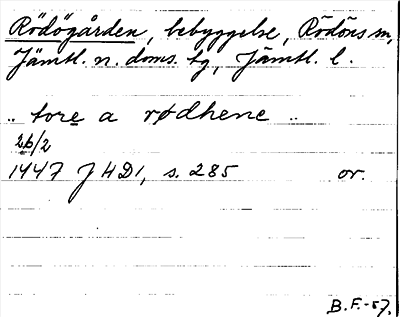 Rödögården, bebyggelse, Rödöns sn,
Jämtl. n. doms. tg, Jämtl. l.
„ tore a rødhene „
26/2
1447 J H D 1, s. 285 or.
B.F.-57.